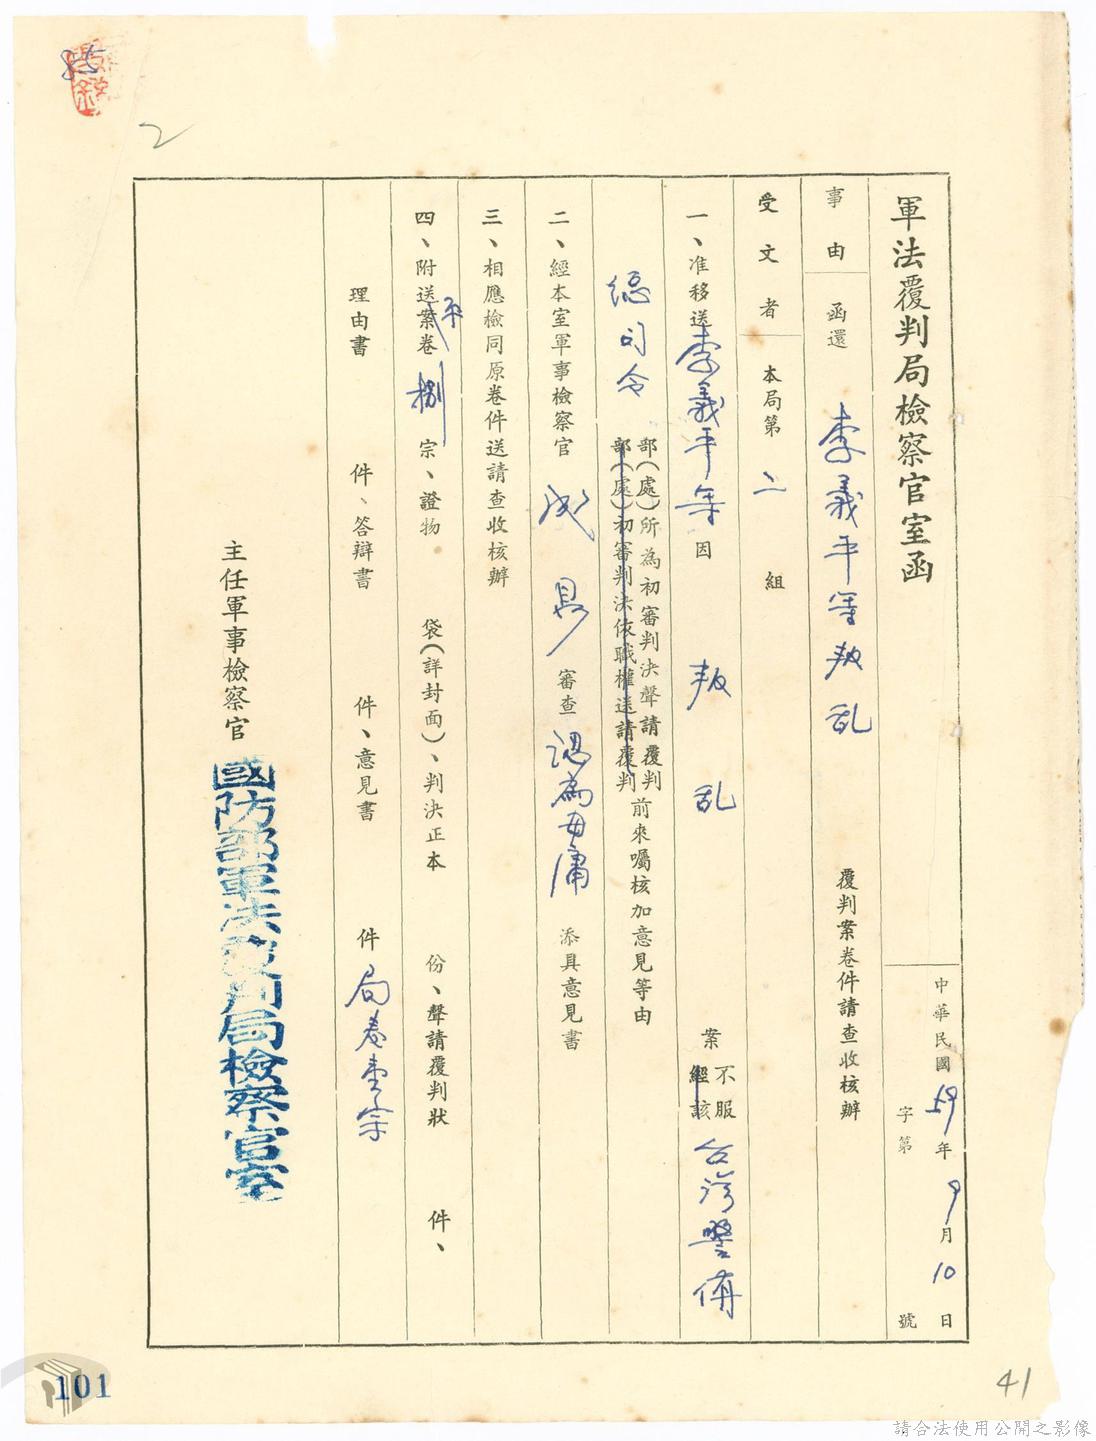 軍法覆判局檢察官室函
中華民國59年9月10日
字第 號
事由 函還 李義平等叛乱 覆判案卷件請查收核辦
受文者 本局第二組
一、准移送李義平等因叛乱案不服台灣警備
經該
總司令部(處)所為初審判決聲請覆判前來囑核加意見等由
部(處)初審判決依職權送請覆判
二、經本室軍事檢察官 審查認為毋庸添具意見書
三、相應檢同原卷件送請查收核辦
四、附送案卷捌宗、證物 袋(詳封面)、判決正本 份、聲請覆判狀 件、
理由書 件、答辯書 件、意見書 件 局卷壹宗
主任軍事檢察官
國防部軍法覆判局檢察官室
85
2
41
101
請合法使用公開之影像